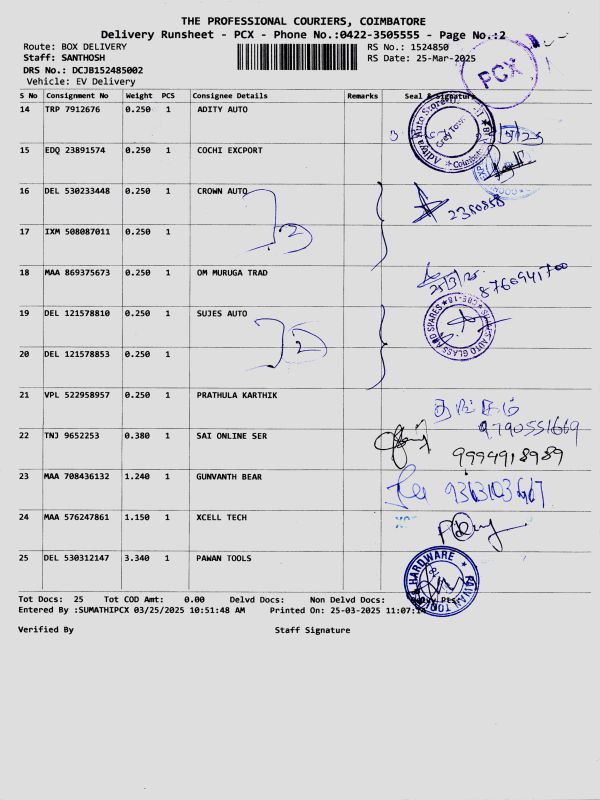 THE PROFESSIONAL COURIERS, COIMBATORE
Delivery Runsheet - PCX - Phone No.:0422-3505555 - Page No.:2
Route: BOX DELIVERY RS No.: 1524850
Staff: SANTHOSH RS Date: 25-Mar-2025
DRS No.: DCJB152485002
Vehicle: EV Delivery
PCX
S No Consignment No Weight PCS Consignee Details Remarks Seal & Signature
14 TRP 7912676 0.250 1 ADITY AUTO
15 EDQ 23891574 0.250 1 COCHI EXCPORT
16 DEL 530233448 0.250 1 CROWN AUTO 2380858
17 IXM 508087011 0.250 1
2
18 MAA 869375673 0.250 1 OM MURUGA TRAD 25/3/25 8760941700
19 DEL 121578810 0.250 1 SUJES AUTO
SUJES AUTO GLASS AND SPARES
20 DEL 121578853 0.250 1
2
21 VPL 522958957 0.250 1 PRATHULA KARTHIK தங்கம்
9790551669
22 TNJ 9652253 0.380 1 SAI ONLINE SER
9994918989
23 MAA 708436132 1.240 1 GUNVANTH BEAR
24 MAA 576247861 1.150 1 XCELL TECH
25 DEL 530312147 3.340 1 PAWAN TOOLS
HARDWARE
Tot Docs: 25 Tot COD Amt: 0.00 Delvd Docs: Non Delvd Docs:
Entered By :SUMATHIPCX 03/25/2025 10:51:48 AM Printed On: 25-03-2025 11:07:14
Verified By Staff Signature